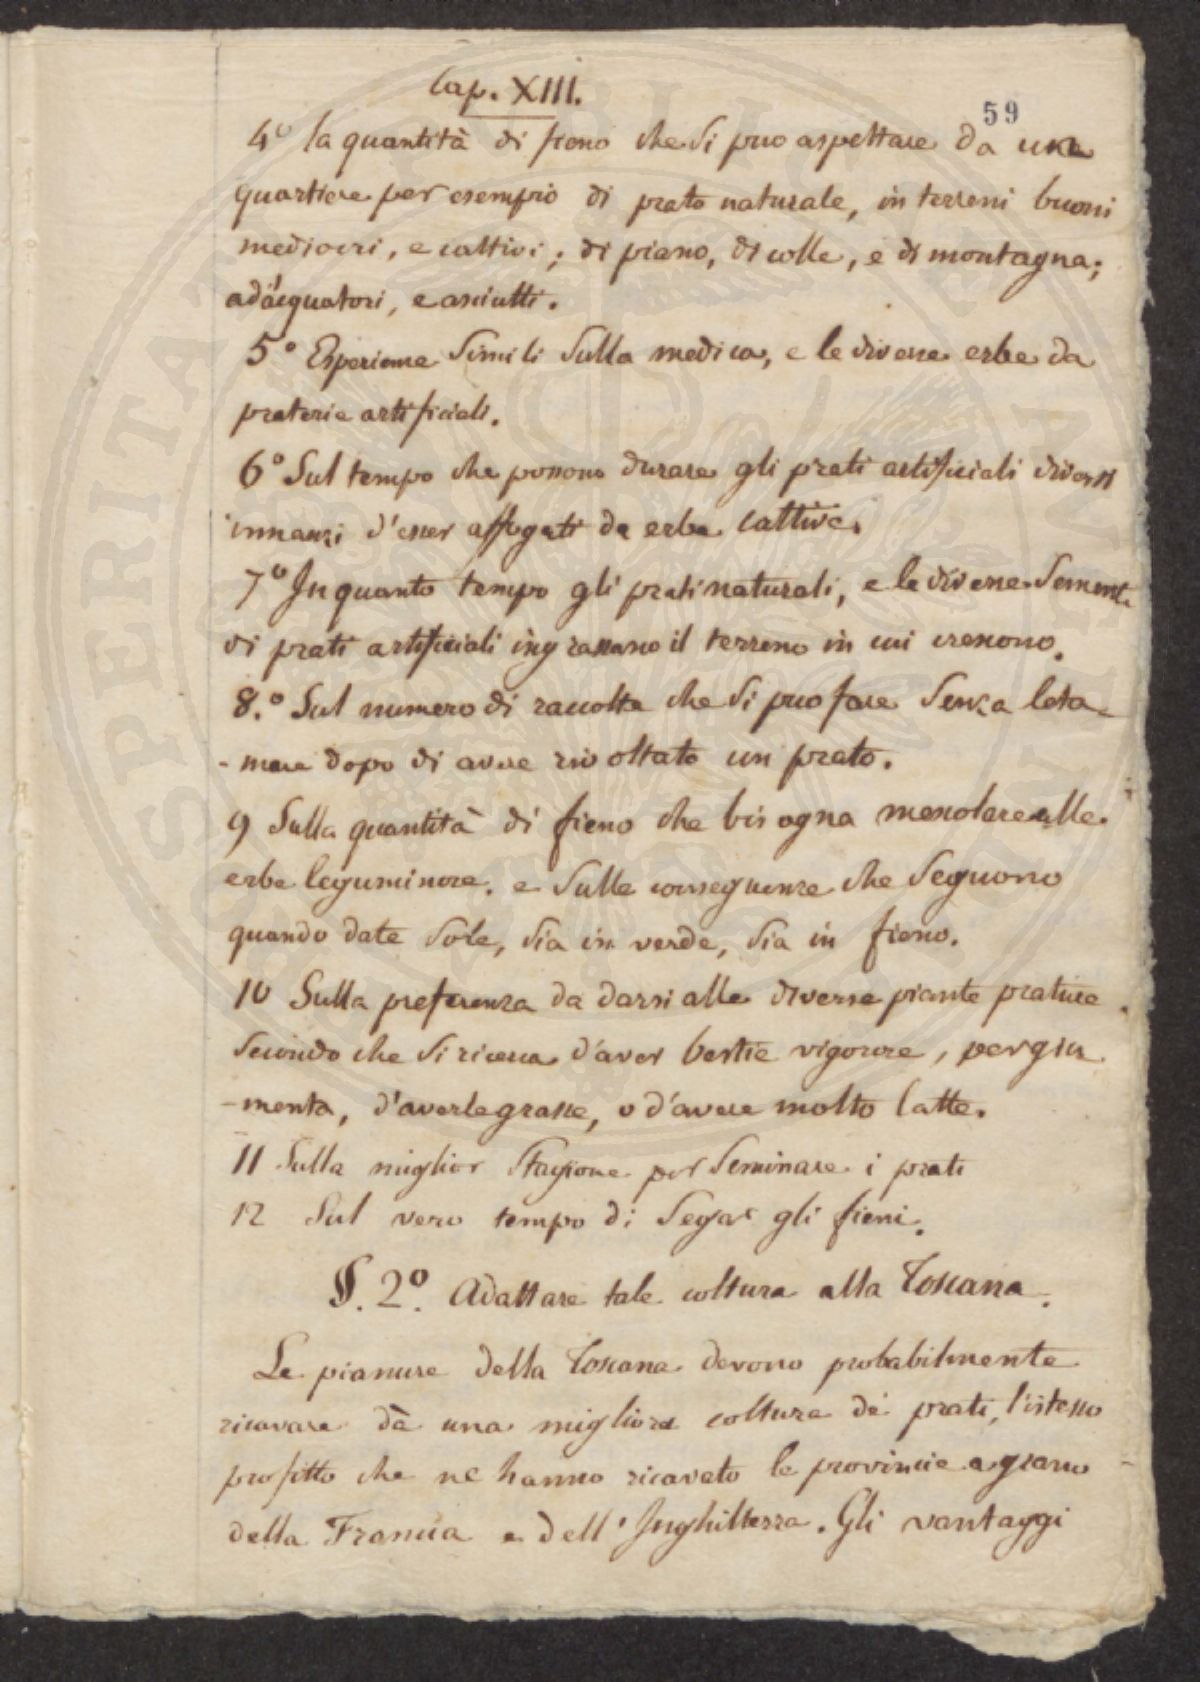 Cap. XIII.
59
4° la quantità di fieno che si puo aspettare da una
quartiere per esempio di prato naturale, in terreni buoni
mediocri, e cattivi; di piano, di colle, e di montagna;
adacquatori, e asciutti.
5° Esperienze simili sulla medica, e le diverse erbe da
praterie artificiali.
6° Sul tempo che possono durare gli prati artificiali diversi
innanzi d'esser affogati da erbe cattive.
7° In quanto tempo gli prati naturali, e le diverse sementi
di prati artificiali ingrassano il terreno in cui crescono.
8.° Sul numero di raccolte che si puo fare senza leta-
-mare dopo di avere rivoltato un prato.
9 Sulla quantità di fieno che bisogna mescolare alle
erbe leguminose. e sulle conseguenze che seguono
quando date sole, sia in verde, sia in fieno.
10 Sulla preferenza da darsi alle diverse piante prative
secondo che si ricerca d'aver bestie vigorose, per giu
-menta, d'averle grasse, o d'avere molto latte.
11 Sulla miglior stagione per seminare i prati
12 Sul vero tempo di segar gli fieni.
§. 2°. Adattare tale coltura alla Toscana.
Le pianure della Toscana devono probabilmente
ricavare dà una migliore coltura de' prati, l'istesso
profitto che ne hanno ricavato le provincie a grano
della Francia e dell'Inghilterra. Gli vantaggi